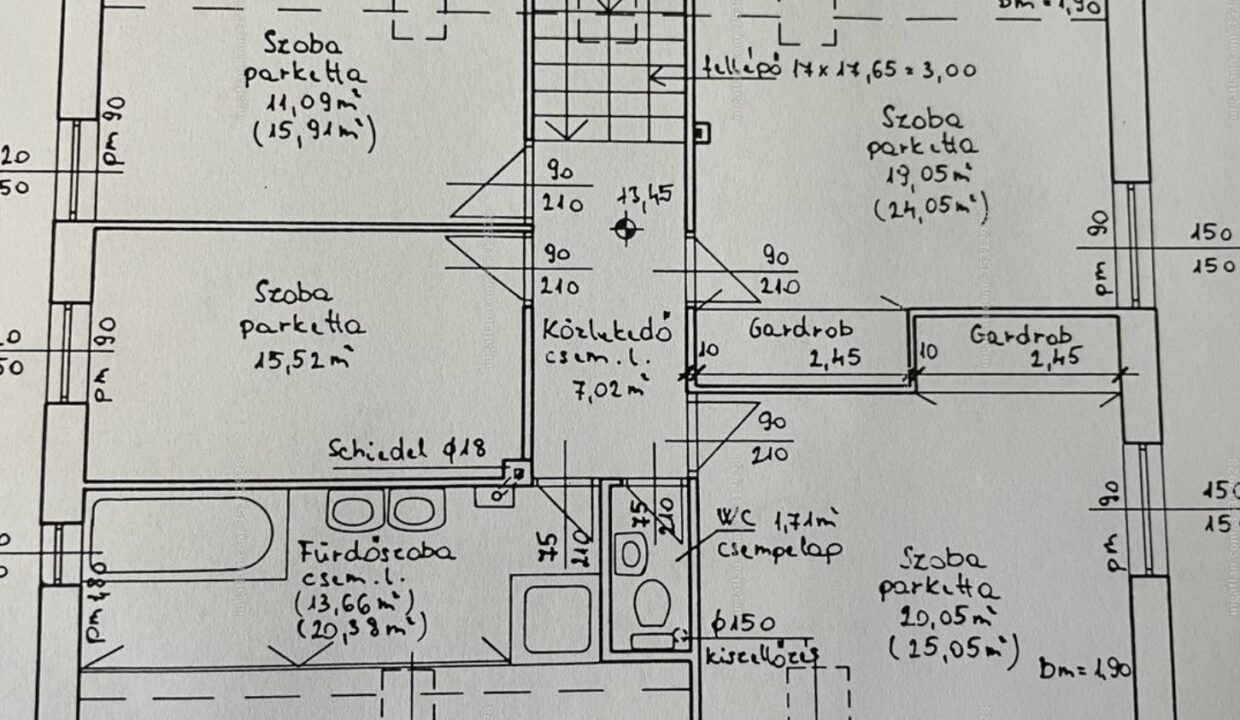 Szoba
parketta
11,09 m²
(15,91 m²)
pm 90
20
50
fellépő 17 x 17,65 = 3,00
bm = 1,90
Szoba
parketta
19,05 m²
(24,05 m²)
pm 90
150
150
90
210
13,45
90
210
90
210
Szoba
parketta
15,52 m²
pm 90
50
Közlekedő
csem. l.
7,02 m²
Gardrob
10
2,45
Gardrob
10
2,45
90
210
Schiedel ϕ18
75
210
75
210
WC 1,71 m²
csempelap
Fürdőszoba
csem. l.
(13,66 m²)
(20,38 m²)
pm 1,80
ϕ150
kiszellőzés
Szoba
parketta
20,05 m²
(25,05 m²)
bm = 1,90
pm 90
150
15